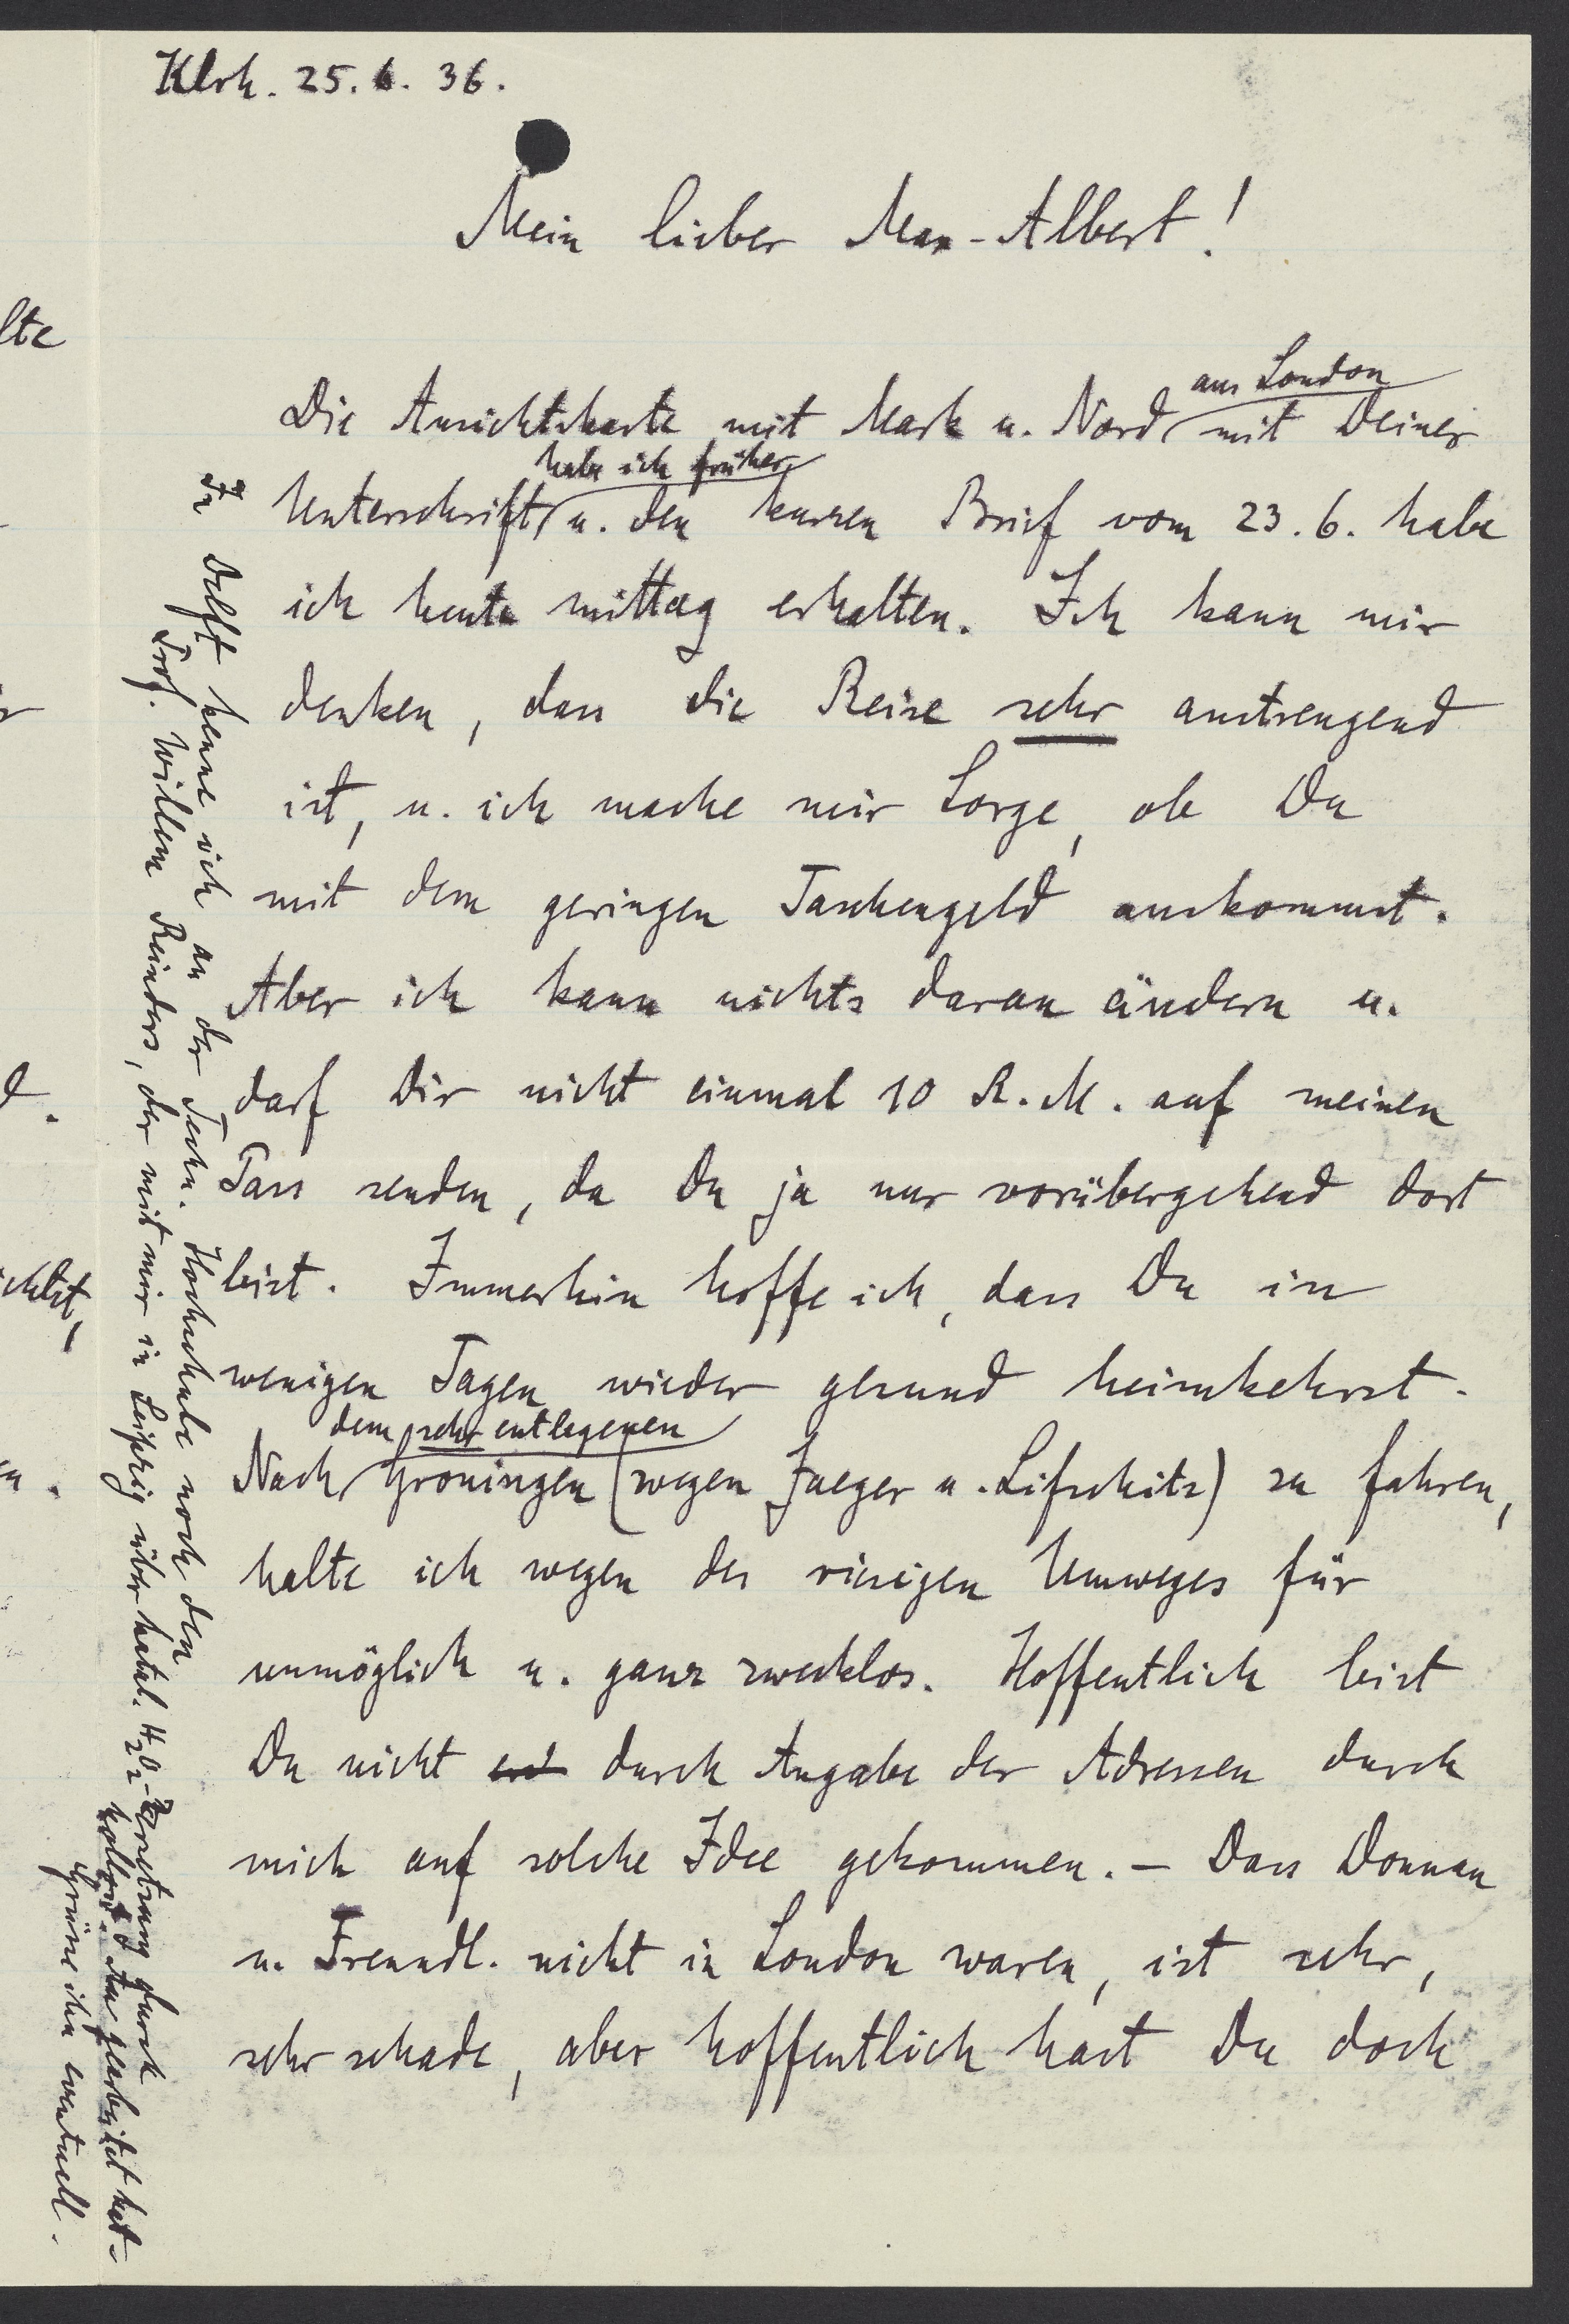 Klrh. 25. 6. 36.
Mein lieber Max-Albert!
aus London
Die Ansichtskarte mit Mark u. Nord mit Deiner
habe ich früher
Unterschrift u. den kurzen Brief vom 23. 6. habe
ich heute mittag erhalten. Ich kann mir
denken, dass die Reise sehr anstrengend
ist, u. ich mache mir Sorge, ob Du
mit dem geringen Taschengeld auskommst.
Aber ich kann nichts daran ändern u.
darf Dir nicht einmal 10 R.M. auf meinen
Pass senden, da Du ja nur vorübergehend dort
bist. Immerhin hoffe ich, dass Du in
wenigen Tagen wieder gesund heimkehrst.
dem sehr entlegenen
Nach Groningen (wegen Jaeger u. Lifschitz) zu fahren,
halte ich wegen des riesigen Umweges für
unmöglich u. ganz zwecklos. Hoffentlich bist
Du nicht durch Angabe der Adressen durch
mich auf solche Idee gekommen. – Dass Donnan
u. Freundl. nicht in London waren, ist sehr,
sehr schade, aber hoffentlich hast Du doch
In Delft kenne ich an der Techn. Hochschule noch den
Prof. Willem Reinders, der mit mir in Leipzig über katal. H2O2-Zersetzung durch
kolloid. Au gearbeitet hat –
Grüsse ihn eventuell.
lte
r
d.
ichtst,
en.